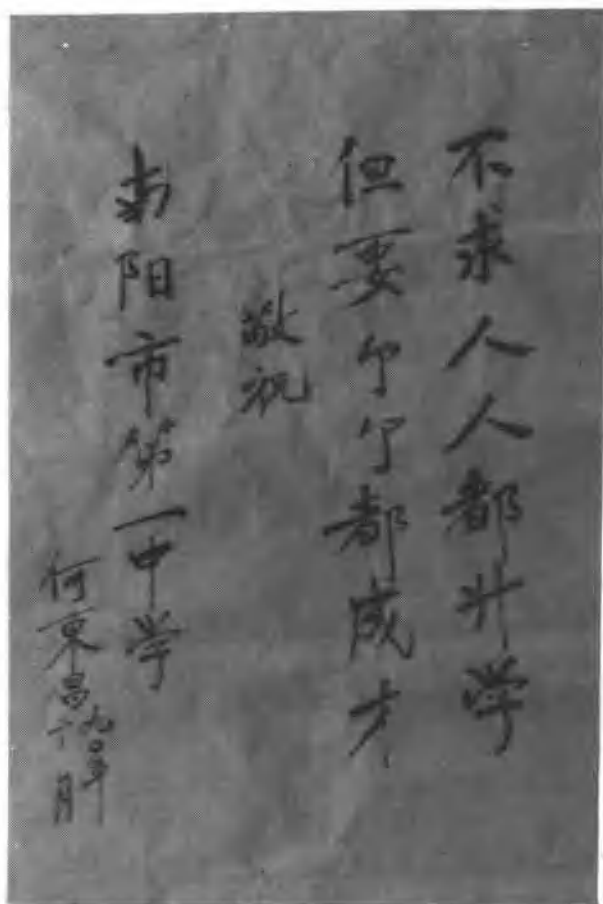 不求人人都升学
但要个个都成才
敬祝
南阳市第一中学
何东昌
九〇年
六月